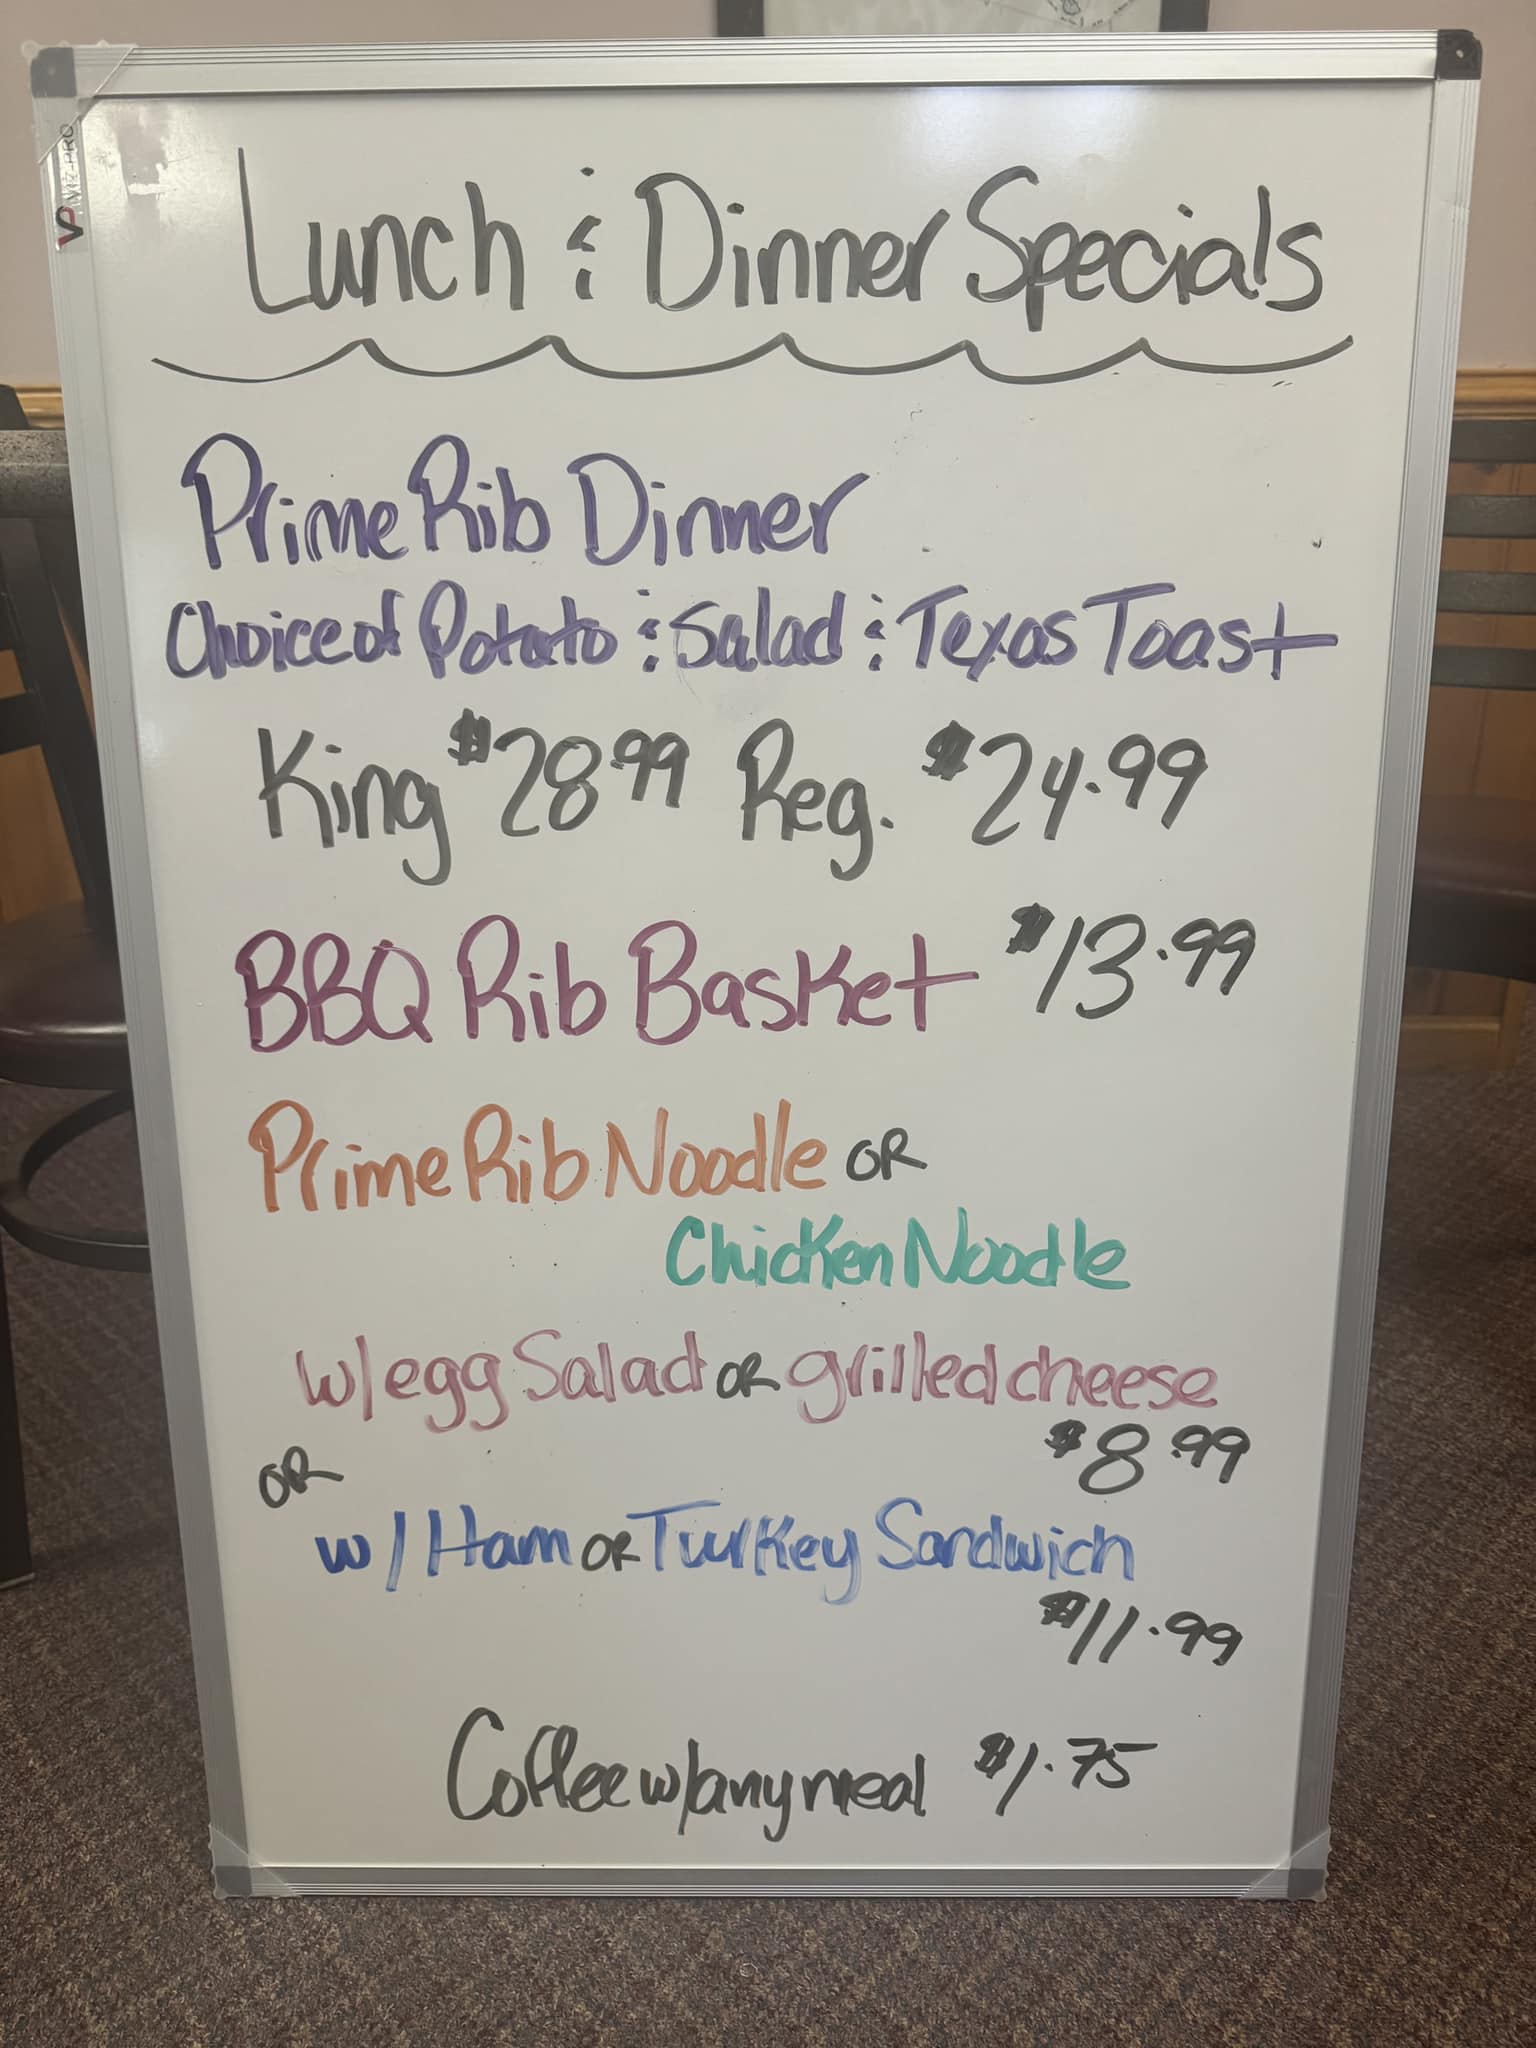 Lunch & Dinner Specials
Prime Rib Dinner
Choice of Potato & Salad & Texas Toast
King $28.99 Reg. $24.99
BBQ Rib Basket $13.99
Prime Rib Noodle OR
Chicken Noodle
w/egg Salad OR grilled cheese
$8.99
OR
w/ Ham OR Turkey Sandwich
$11.99
Coffee w/any meal $1.75